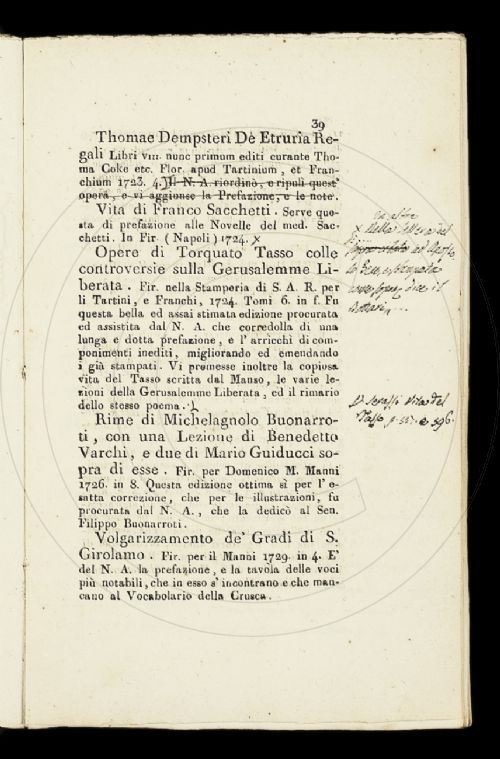 39
Thomae Dempsteri De Etruria Re-
gali Libri VIII. nunc primum editi curante Tho-
ma Coke etc. Flor. apud Tartinium, et Fran-
chium 1723. 4. Il N. A. riordinò, e ripulì quest'
opera, e vi aggiunse la Prefazione, e le note.
Vita di Franco Sacchetti. Serve que-
sta di prefazione alle Novelle del med. Sac-
chetti. In Fir (Napoli) 1724. x
Opere di Torquato Tasso colle
controversie sulla Gerusalemme Li-
berata. Fir. nella Stamperia di S. A. R. per
li Tartini, e Franchi, 1724. Tomi 6. in f. Fu
questa bella ed assai stimata edizione procurata
ed assistita dal N. A. che corredolla di una
lunga e dotta prefazione, e l'arricchì di com-
ponimenti inediti, migliorando ed emendando
i già stampati. Vi premesse inoltre la copiosa
vita del Tasso scritta dal Manso, le varie le-
zioni della Gerusalemme Liberata, ed il rimario
dello stesso poema.
Rime di Michelagnolo Buonarro-
ti, con una Lezione di Benedetto
Varchi, e due di Mario Guiducci so-
pra di esse. Fir. per Domenico M. Manni
1726. in 8. Questa edizione ottima sì per l'e-
satta correzione, che per le illustrazioni, fu
procurata dal N. A., che la dedicò al Sen.
Filippo Buonarroti.
Volgarizzamento de' Gradi di S.
Girolamo. Fir. per il Manni 1729. in 4. E'
del N. A. la prefazione, e la tavola delle voci
più notabili, che in esso s'incontrano e che man-
cano al Vocabolario della Crusca.
x Nella lettera del
Serassi Vita del
Tasso p.